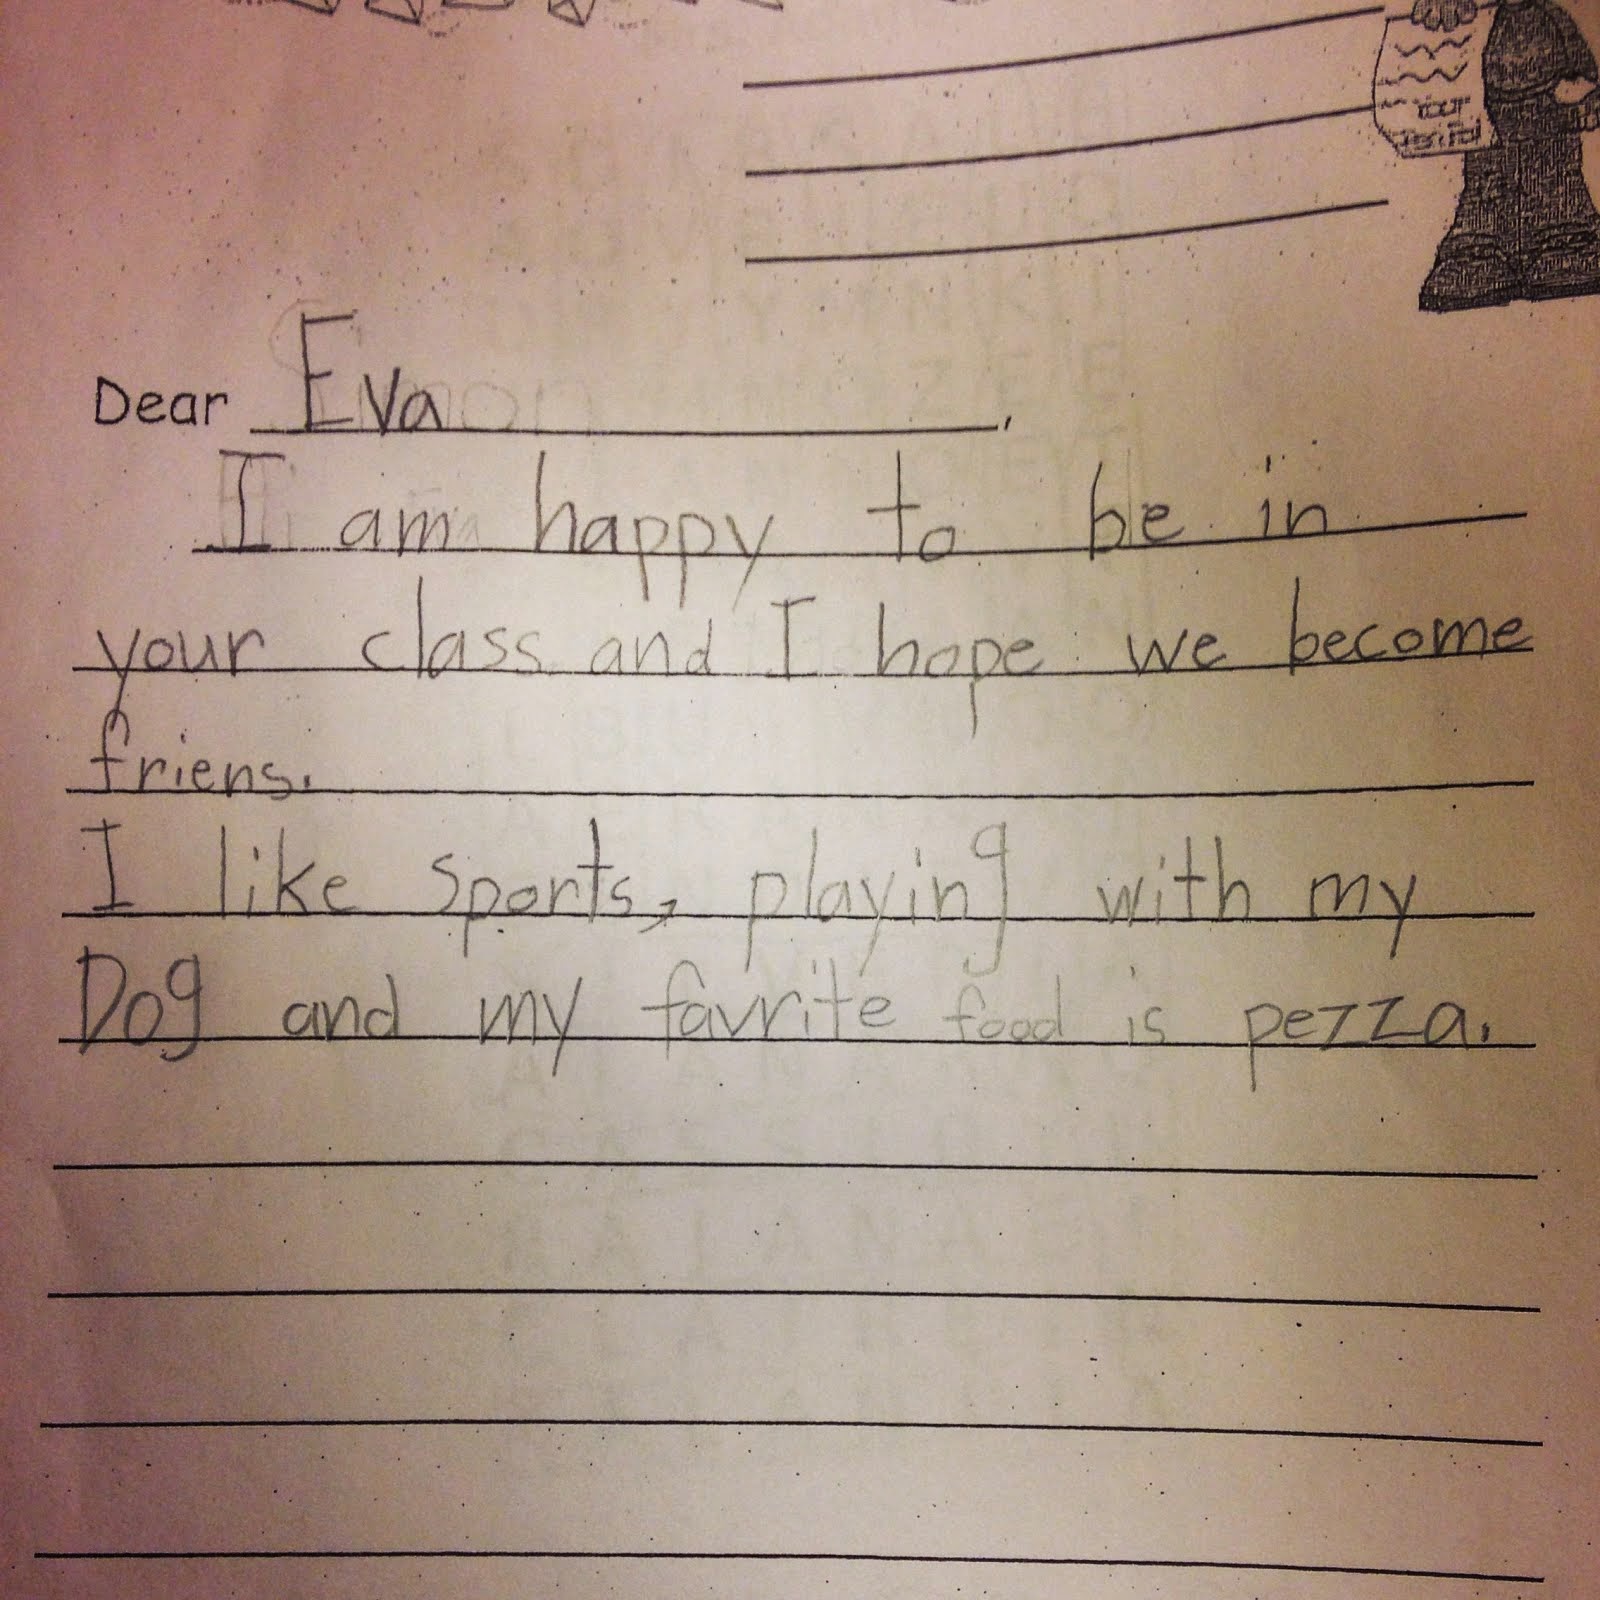 Dear Eva,
I am happy to be in
your class and I hope we become
friens.
I like sports, playing with my
Dog and my favrite food is pezza.